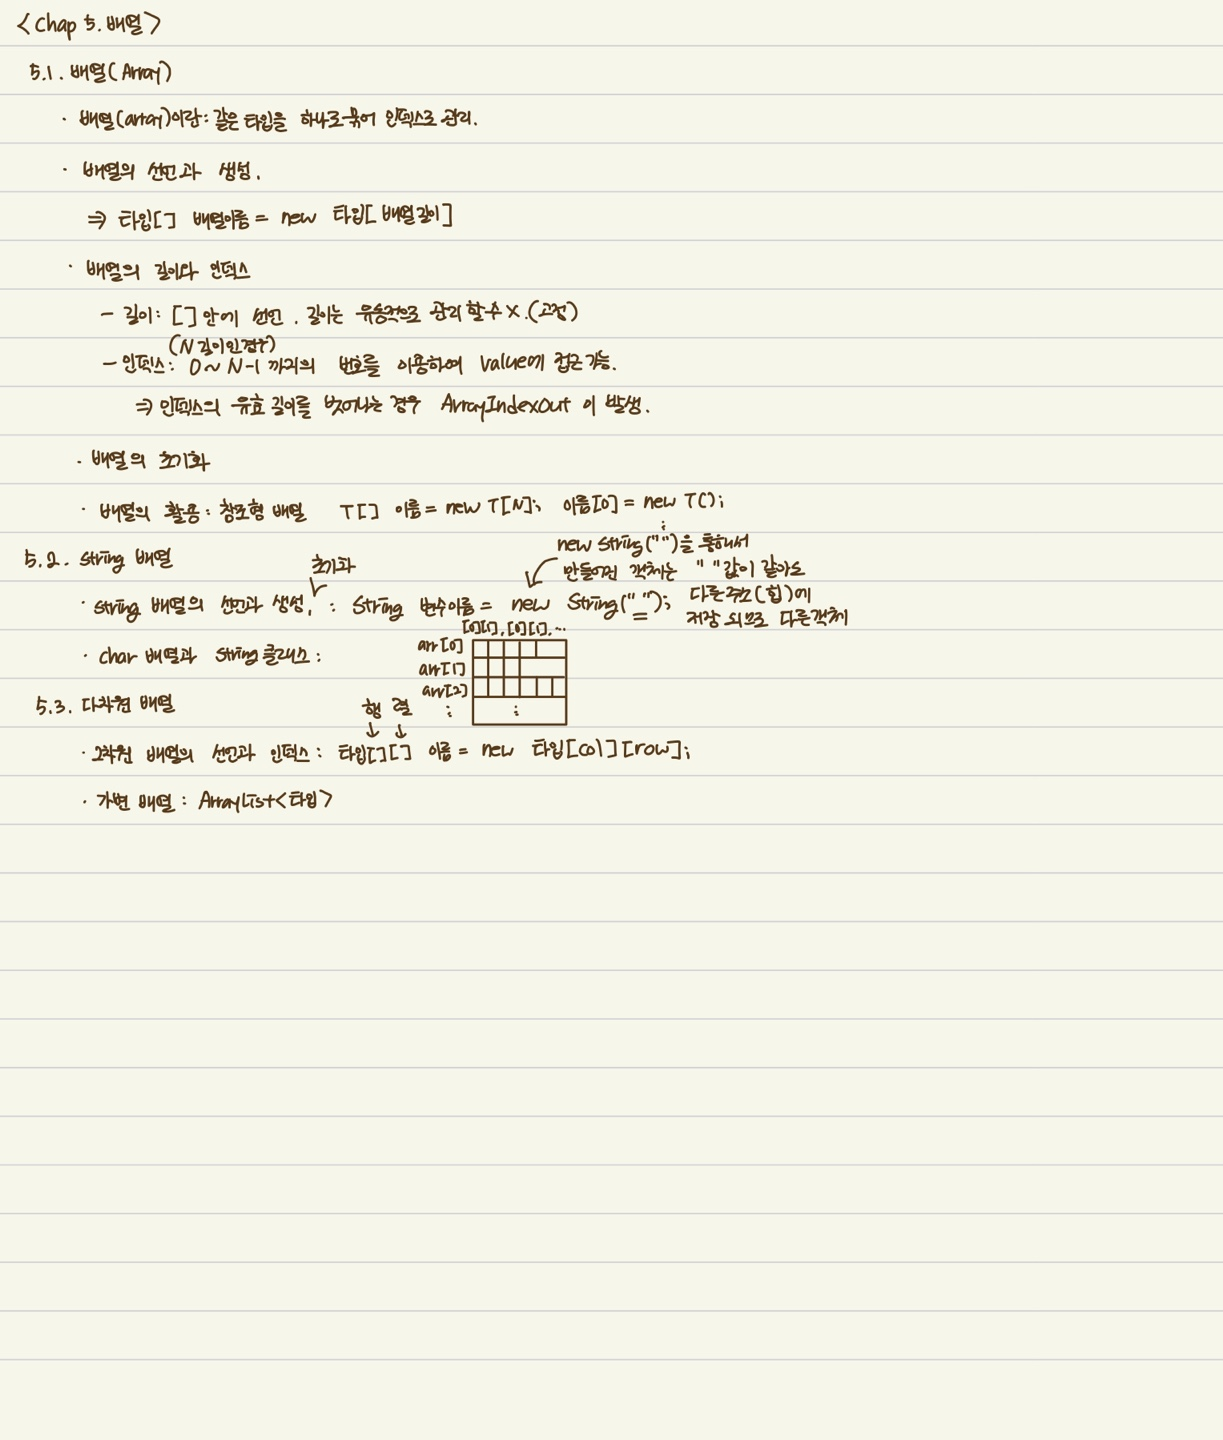 <Chap 5. 배열>
5.1. 배열(Array)
· 배열(array)이란: 같은 타입을 하나로 묶어 인덱스로 관리.
· 배열의 선언과 생성.
⇒ 타입[] 배열이름 = new 타입[배열길이]
· 배열의 길이와 인덱스
- 길이: [] 안에 선언. 길이는 유동적으로 관리할 수 X.(고정)
(N 길이인 경우)
- 인덱스: 0~N-1 까지의 번호를 이용하여 value에 접근 가능.
⇒ 인덱스의 유효 길이를 벗어나는 경우 ArrayIndexOut 이 발생.
· 배열의 초기화
· 배열의 활용: 참조형 배열 T[] 이름 = new T[N]; 이름[0] = new T();
⋮
new String("")을 통해서
5.2. String 배열
초기화
만들어진 객체는 " "값이 같아도
· String 배열의 선언과 생성, : String 변수이름 = new String(" ");
다른 주소(힙)에
저장 되므로 다른 객체
[0][0], [0][1], ...
· char 배열과 String 클래스 :
arr[0]
arr[1]
arr[2]
⋮ ⋮
5.3. 다차원 배열
행 열
↓ ↓
· 2차원 배열의 선언과 인덱스 : 타입[][] 이름 = new 타입[col][row];
· 가변 배열 : ArrayList<타입>